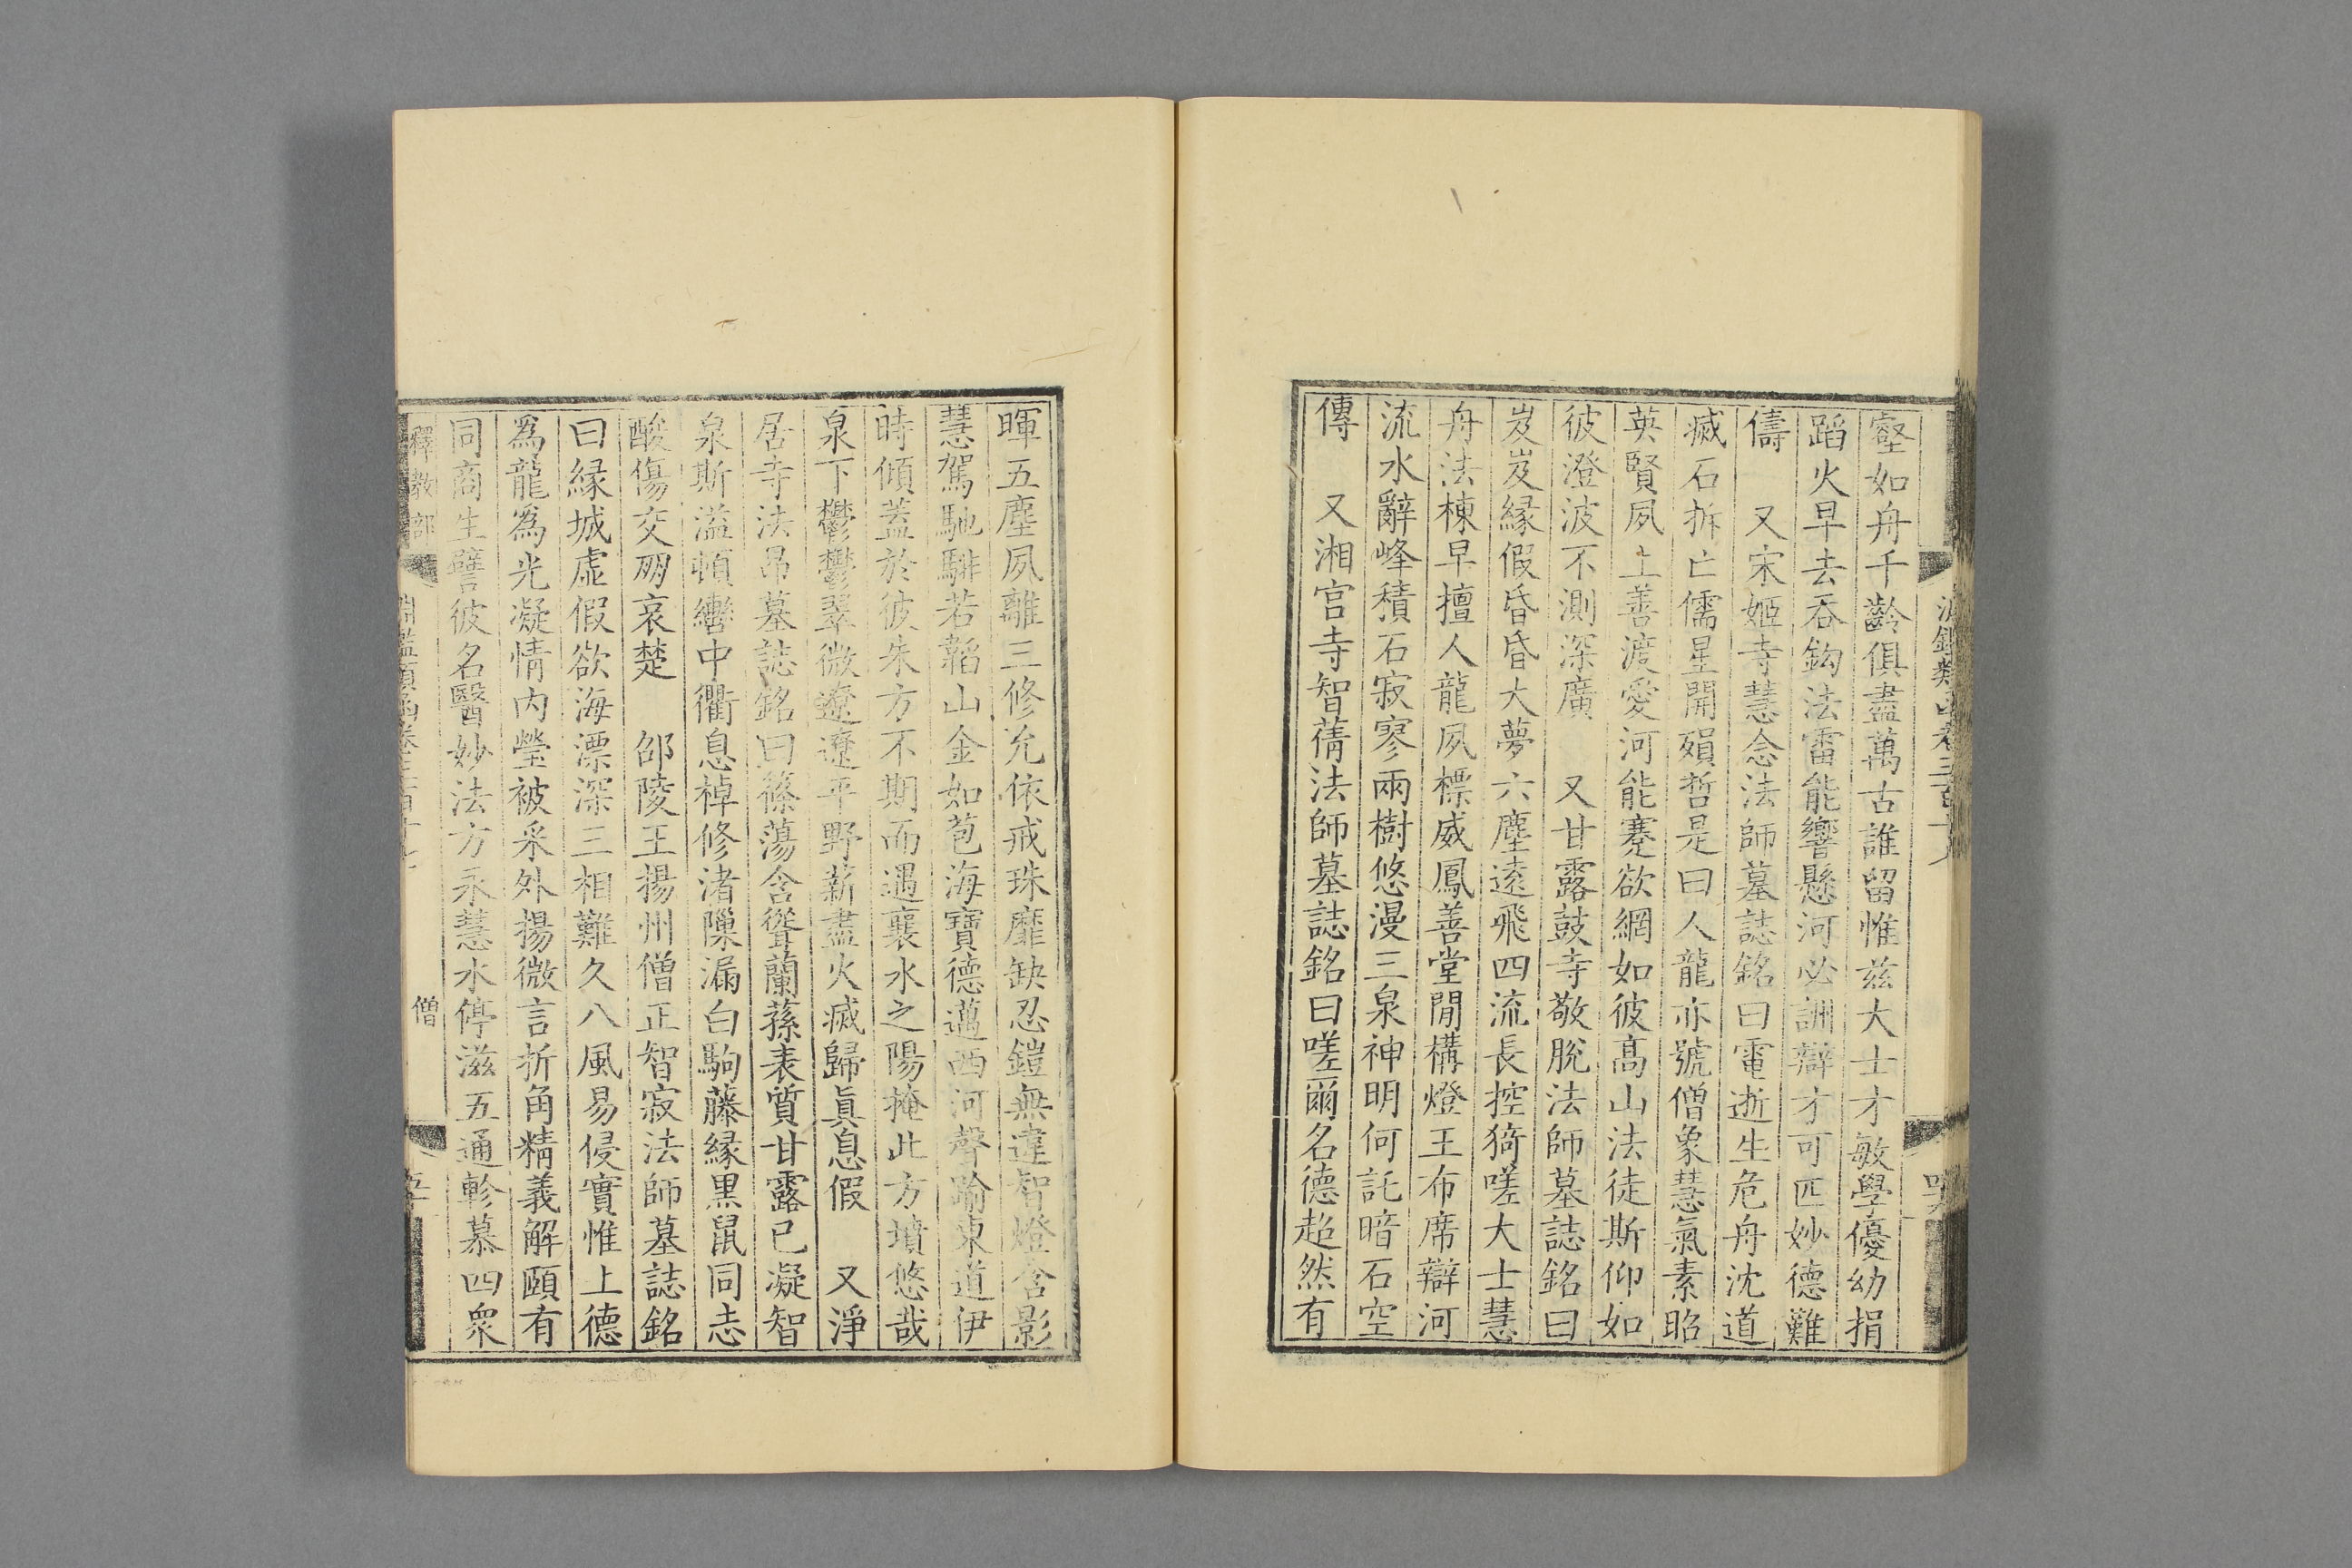 壑如舟千齡俱盡萬古誰留惟茲大士才敏學優幼捐
蹈火早去吞鈎法雷能響懸河必詶辯才可匹妙德難
儔　又宋姬寺慧念法師墓誌銘曰電逝生危舟沈道
滅石拆亡儒星開殞哲是曰人龍亦號僧象慧氣素昭
英賢夙上善渡愛河能蹇欲網如彼高山法徒斯仰如
彼澄波不測深廣　又甘露鼓寺敬脫法師墓誌銘曰
岌岌緣假昏昏大夢六塵遠飛四流長控猗嗟大士慧
舟法棟早擅人龍夙標威鳳善堂閒構燈王布席辯河
流水辭峰積石寂寥兩樹悠漫三泉神明何託暗石空
傳　又湘宮寺智蒨法師墓誌銘曰嗟爾名德超然有
暉五塵夙離三修允依戒珠靡缺忍鎧無違智燈含影
慧駕馳騑若韜山金如苞海寶德邁西河聲踰東道伊
時傾蓋於彼朱方不期而遇襄水之陽掩此方墳悠哉
泉下鬱鬱翠微遼遼平野薪盡火滅歸眞息假　又淨
居寺法昂墓誌銘曰篠蕩含聳蘭蓀表質甘露已凝智
泉斯溢頓轡中衢息棹修渚隟漏白駒藤緣黑鼠同志
酸傷交朋哀楚　邵陵王揚州僧正智寂法師墓誌銘
曰緣城虛假欲海漂深三相難久八風易侵實惟上德
爲龍爲光凝情內瑩被采外揚微言折角精義解頤有
同商生譬彼名醫妙法方永慧水停滋五通軫慕四衆
釋教部
僧